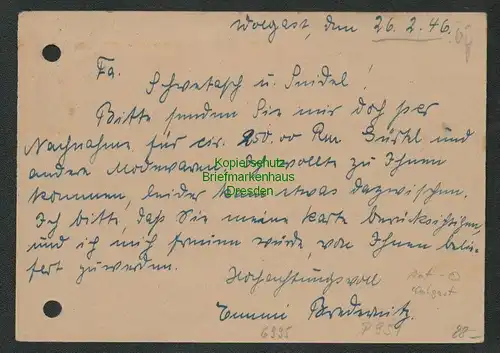 Wolgast, den 26.2.46.
Fa.
Schwetasch u. Seidel!
Bitte senden Sie mir doch per
Nachnahme für cir. 250.00 Rm Gürtel und
andere Modewaren. Ich wollte zu Ihnen
kommen, leider kam etwas dazwischen.
Ich bitte, daß Sie meine Karte berücksichtigen,
und ich mich freuen würde, von Ihnen belie-
fert zu werden.
Hochachtungsvoll
Emmi
Kopierschutz
Briefmarkenhaus
Dresden
Wolgast
6995
P 951
28-